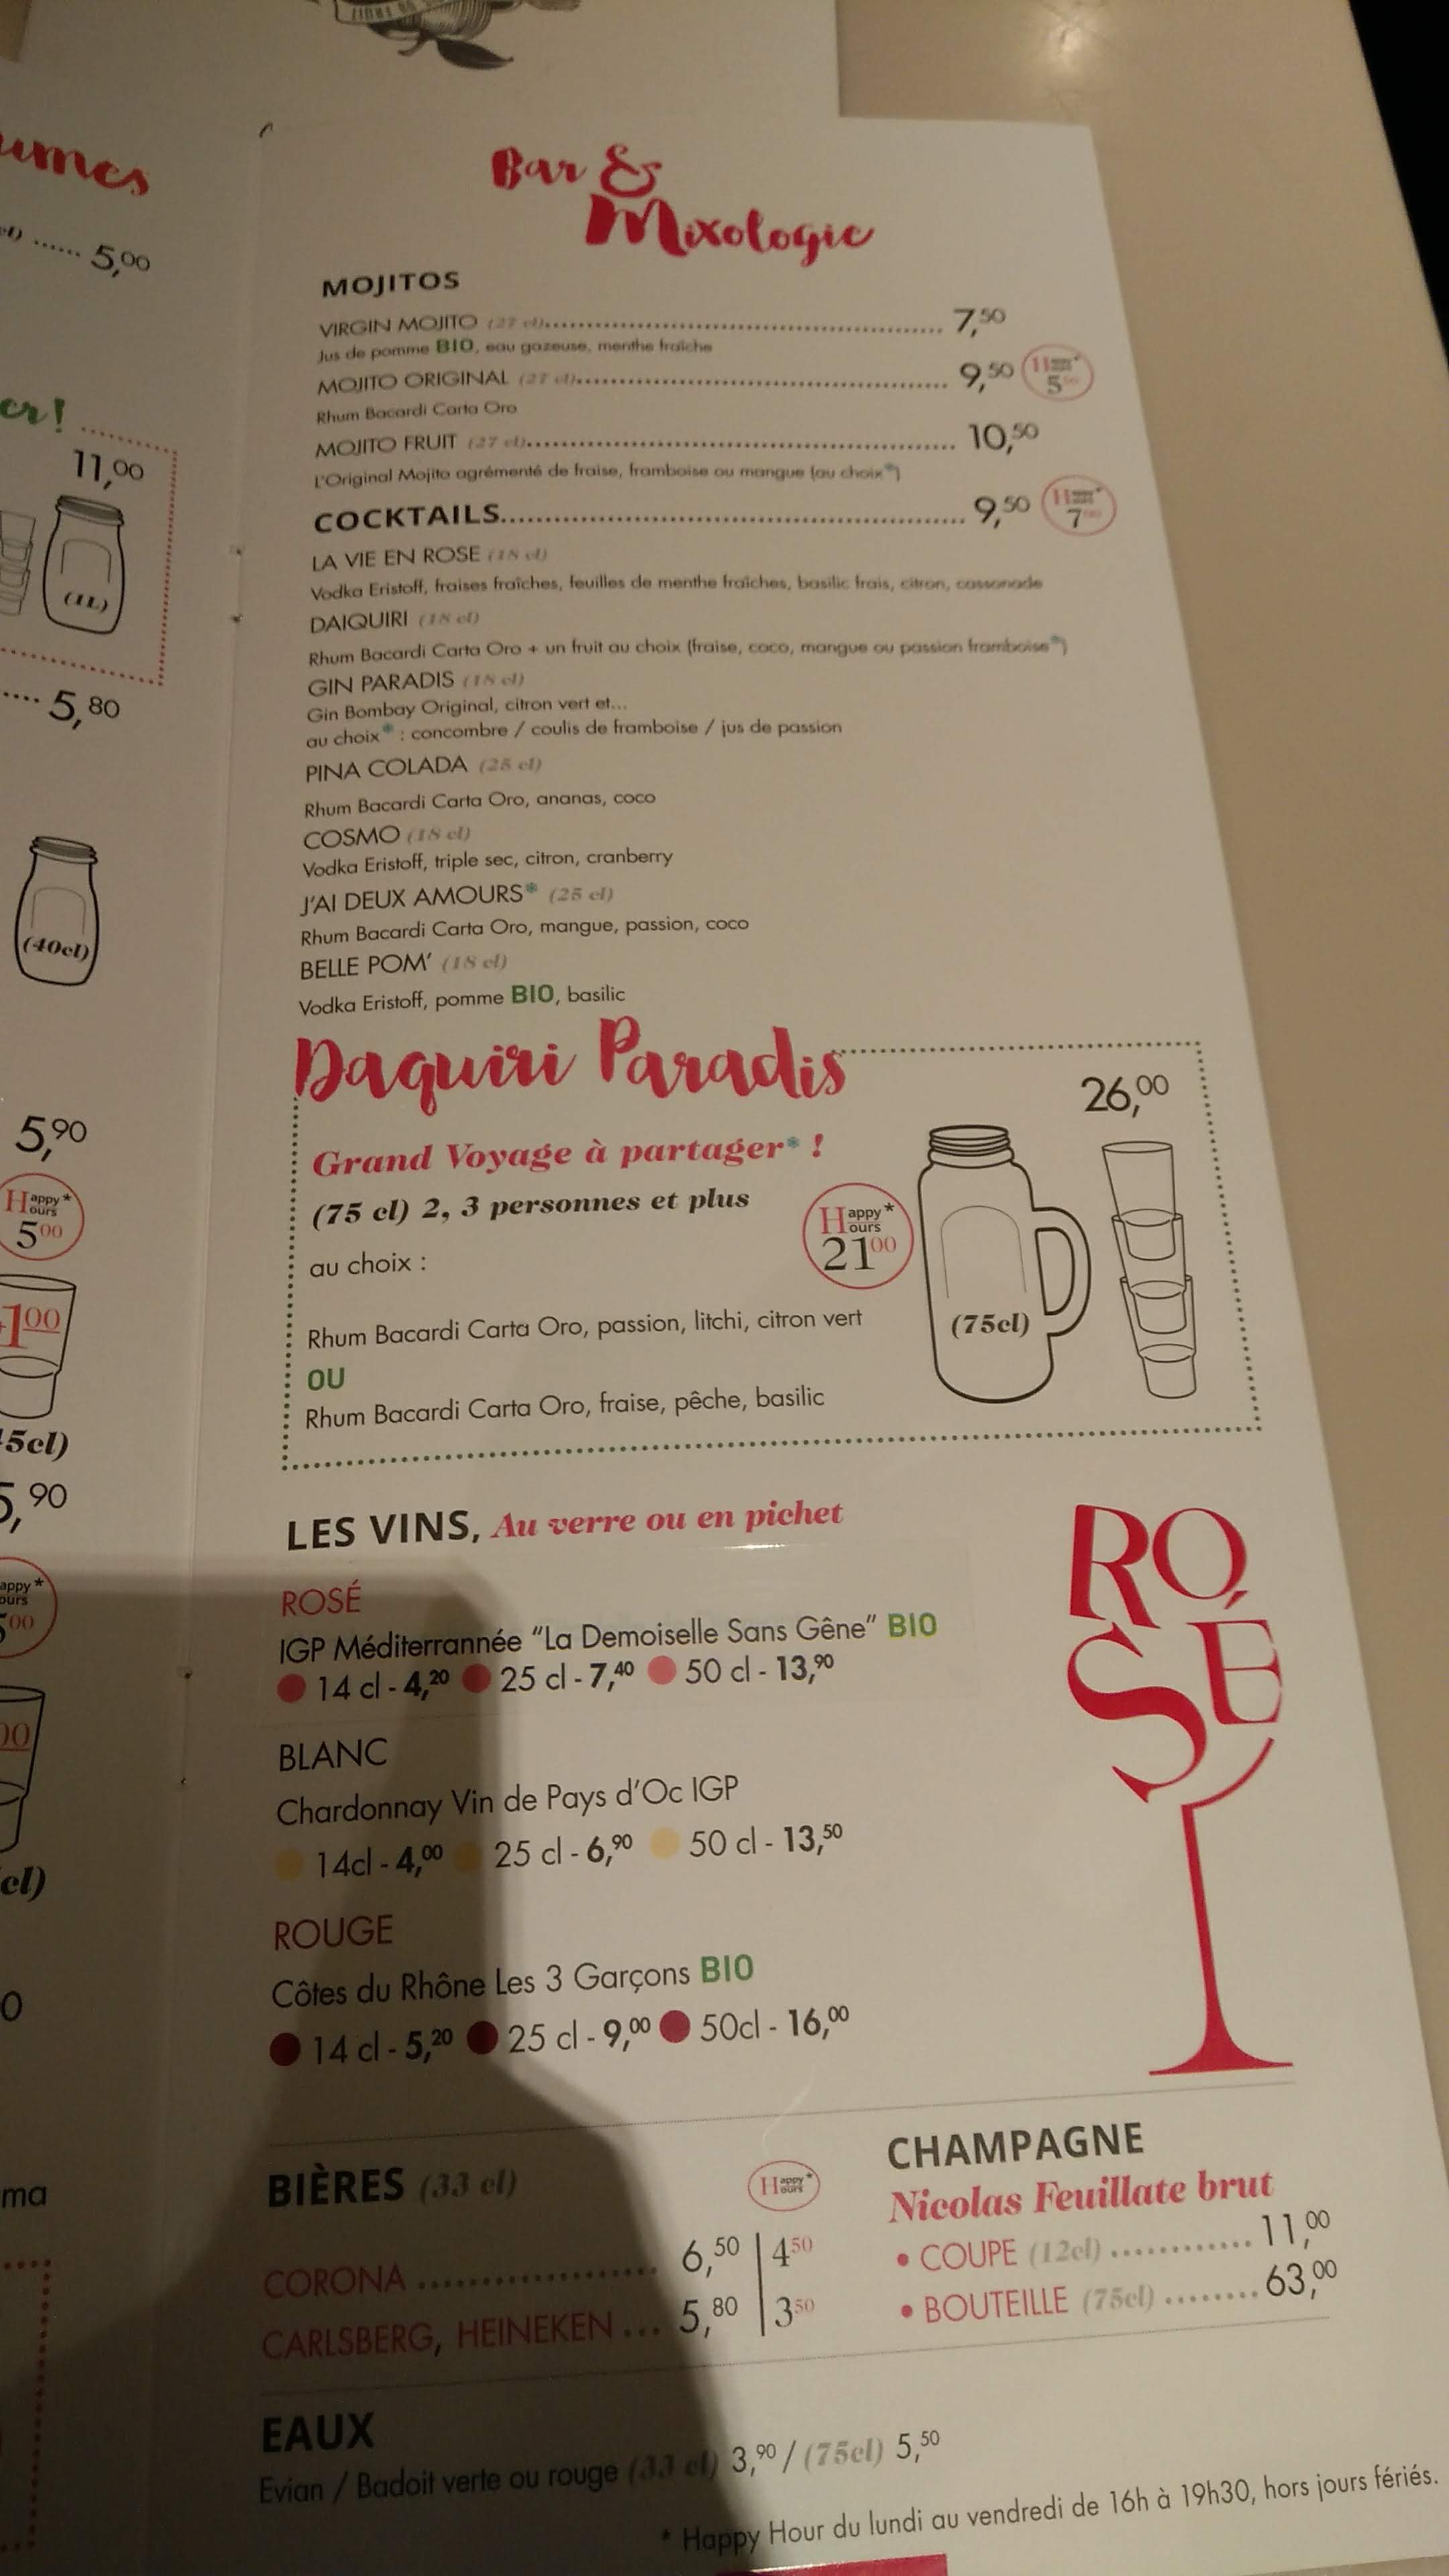 umes
5,00
er!
11,00
(1L)
5,80
(40cl)
5,90
Happy Hours*
5 00
1 00
5cl)
,90
appy*
ours
00
cl)
ma
Bar &
Mixologie
MOJITOS
VIRGIN MOJITO (27 cl) 7,50
Jus de pomme BIO, eau gazeuse, menthe fraîche
MOJITO ORIGINAL (27 cl) 9,50
Rhum Bacardi Carta Oro
MOJITO FRUIT (27 cl) 10,50
L'Original Mojito agrémenté de fraise, framboise ou mangue (au choix*)
COCKTAILS 9,50
LA VIE EN ROSE (18 cl)
Vodka Eristoff, fraises fraîches, feuilles de menthe fraîches, basilic frais, citron, cassonade
DAIQUIRI (18 cl)
Rhum Bacardi Carta Oro + un fruit au choix (fraise, coco, mangue ou passion framboise*)
GIN PARADIS (18 cl)
Gin Bombay Original, citron vert et...
au choix* : concombre / coulis de framboise / jus de passion
PINA COLADA (25 cl)
Rhum Bacardi Carta Oro, ananas, coco
COSMO (18 cl)
Vodka Eristoff, triple sec, citron, cranberry
J'AI DEUX AMOURS* (25 cl)
Rhum Bacardi Carta Oro, mangue, passion, coco
BELLE POM' (18 cl)
Vodka Eristoff, pomme BIO, basilic
Daquiri Paradis
26,00
Grand Voyage à partager* !
(75 cl) 2, 3 personnes et plus
Happy Hours*
21 00
au choix :
Rhum Bacardi Carta Oro, passion, litchi, citron vert
(75cl)
OU
Rhum Bacardi Carta Oro, fraise, pêche, basilic
LES VINS, Au verre ou en pichet
ROSÉ
ROSÉ
IGP Méditerrannée "La Demoiselle Sans Gêne" BIO
14 cl - 4,20 25 cl - 7,40 50 cl - 13,90
BLANC
Chardonnay Vin de Pays d'Oc IGP
14cl - 4,00 25 cl - 6,90 50 cl - 13,50
ROUGE
Côtes du Rhône Les 3 Garçons BIO
14 cl - 5,20 25 cl - 9,00 50cl - 16,00
BIÈRES (33 cl) Happy Hours*
CORONA 6,50 | 4 50
CARLSBERG, HEINEKEN ... 5,80 | 3 50
CHAMPAGNE
Nicolas Feuillate brut
• COUPE (12cl) 11,00
• BOUTEILLE (75cl) 63,00
EAUX
Evian / Badoit verte ou rouge (33 cl) 3,90 / (75cl) 5,50
* Happy Hour du lundi au vendredi de 16h à 19h30, hors jours fériés.